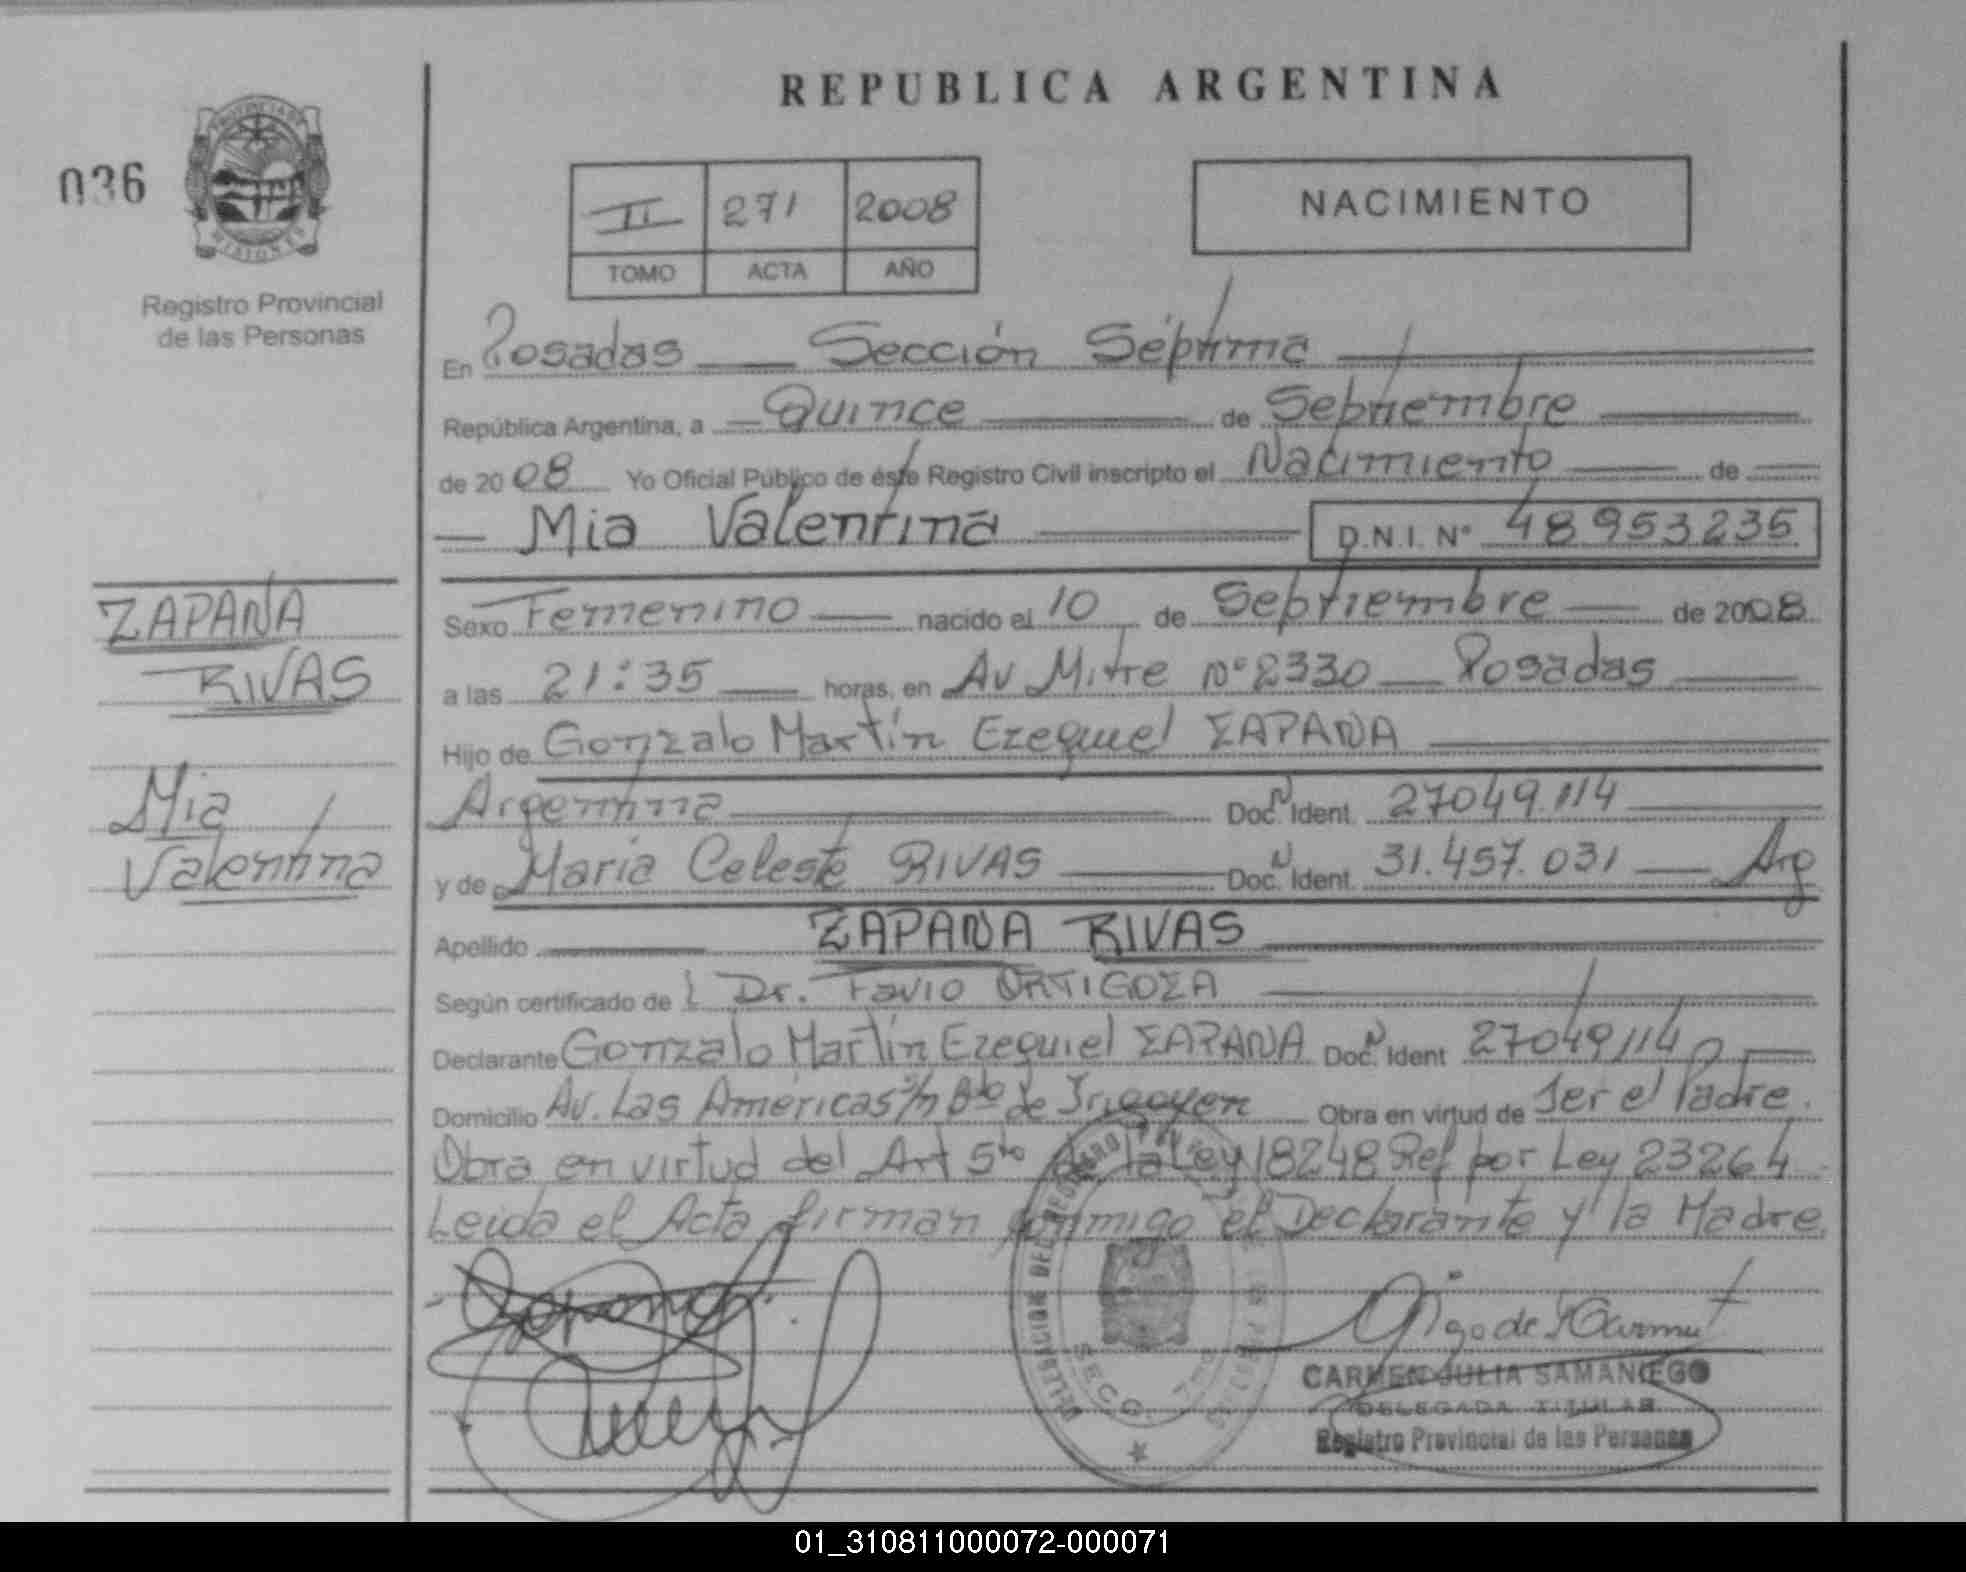 REPUBLICA ARGENTINA
036
PROVINCIA DE MISIONES
Registro Provincial
de las Personas
II 271 2008
TOMO ACTA AÑO
NACIMIENTO
En Posadas — Sección Séptima
República Argentina, a — Quince — de Septiembre
de 2008 Yo Oficial Público de éste Registro Civil inscripto el Nacimiento — de —
— Mia Valentina — D.N.I. Nº 48953235
ZAPANA
RIVAS
Mia
Valentina
Sexo Femenino — nacido el 10 de Septiembre — de 2008
a las 21:35 — horas, en Av Mitre Nº 2330 — Posadas —
Hijo de Gonzalo Martín Ezequiel ZAPANA —
Argentina — Doc. N Ident. 27049.114 —
y de María Celeste RIVAS — Doc. N Ident. 31.457.031 — Arg
Apellido — ZAPANA RIVAS —
Según certificado de Dr. Favio ORTIGOZA —
Declarante Gonzalo Martín Ezequiel ZAPANA Doc. N Ident 27049114 —
Domicilio Av. Las Américas s/n Bdo de Irigoyen Obra en virtud de ser el Padre.
Obra en virtud del Art 5to de la Ley 18248 Ref por Ley 23264
Leida el Acta firman conmigo el Declarante y la Madre.
CARMEN JULIA SAMANIEGO
DELEGADA TITULAR
Registro Provincial de las Personas
01_310811000072-000071